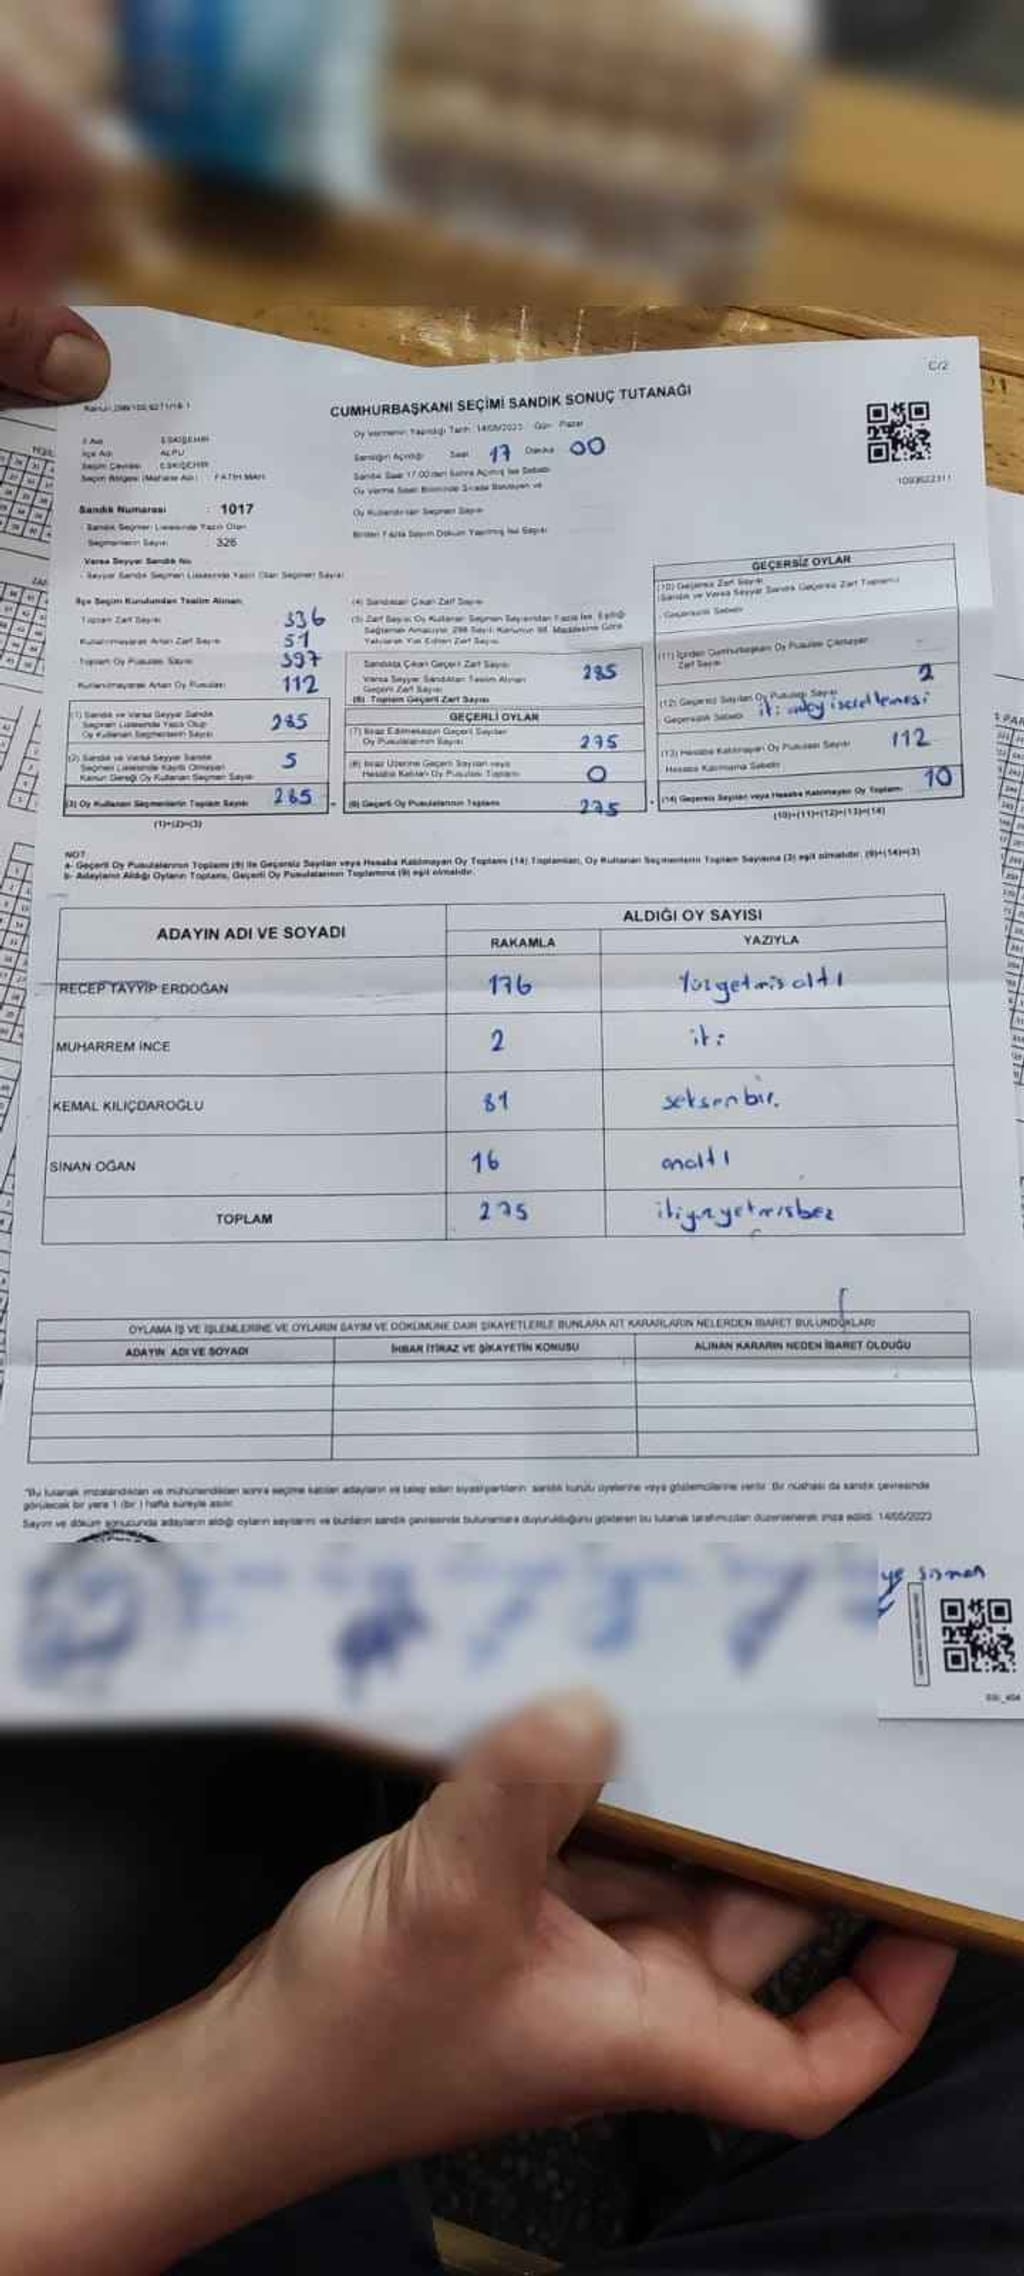 C/2
CUMHURBAŞKANI SEÇİMİ SANDIK SONUÇ TUTANAĞI
Oy Vermenin Yapıldığı Tarih: 14/05/2023 Gün: Pazar
Sandığın Açıldığı Saat 17 Dakika 00
İl Adı : ESKİŞEHİR
İlçe Adı : ALPU
Seçim Çevresi : ESKİŞEHİR
Seçim Bölgesi (Mahalle Adı) : FATİH MAH.
Sandık Numarası : 1017
Sandık Seçmen Listesinde Yazılı Olan
Seçmenlerin Sayısı : 326
Varsa Seyyar Sandık No
- Seyyar Sandık Seçmen Listesinde Yazılı Olan Seçmen Sayısı
Oy Kullandırılan Seçmen Sayısı
Birden Fazla Sayım Döküm Yapılmış İse Sayısı
İlçe Seçim Kurulundan Teslim Alınan
Toplam Zarf Sayısı 336
Kullanılmayarak Artan Zarf Sayısı 51
Toplam Oy Pusulası Sayısı 397
Kullanılmayarak Artan Oy Pusulası 112
(1) Sandık ve Varsa Seyyar Sandık
Seçmen Listesinde Yazılı Olup
Oy Kullanan Seçmenlerin Sayısı 285
(2) Sandık ve Varsa Seyyar Sandık
Seçmen Listesinde Kayıtlı Olmayan
Kanun Gereği Oy Kullanan Seçmen Sayısı 5
(3) Oy Kullanan Seçmenlerin Toplam Sayısı 285
(1)+(2)=(3)
(4) Sandıktan Çıkan Zarf Sayısı
(5) Zarf Sayısı Oy Kullanan Seçmen Sayısından Fazla İse, Eşitliği
Sağlamak Amacıyla, 298 Sayılı Kanunun 98. Maddesine Göre
Yakılarak Yok Edilen Zarf Sayısı
Sandıkta Çıkan Geçerli Zarf Sayısı 285
Varsa Seyyar Sandıktan Teslim Alınan
Geçerli Zarf Sayısı
(6) Toplam Geçerli Zarf Sayısı
GEÇERLİ OYLAR
(7) İtiraz Edilmeksizin Geçerli Sayılan
Oy Pusulalarının Sayısı 275
(8) İtiraz Üzerine Geçerli Sayılan veya
Hesaba Katılan Oy Pusulası Toplamı 0
(9) Geçerli Oy Pusulalarının Toplamı 275
1093622311
GEÇERSİZ OYLAR
(10) Geçersiz Zarf Sayısı
(Sandık ve Varsa Seyyar Sandık Geçersiz Zarf Toplamı)
Geçersizlik Sebebi
(11) İçinden Cumhurbaşkanı Oy Pusulası Çıkmayan
Zarf Sayısı
(12) Geçersiz Sayılan Oy Pusulası Sayısı 2
Geçersizlik Sebebi
(13) Hesaba Katılmayan Oy Pusulası Sayısı 112
Hesaba Katılmama Sebebi
(14) Geçersiz Sayılan veya Hesaba Katılmayan Oy Toplamı 10
(10)+(11)+(12)+(13)=(14)
NOT
a- Geçerli Oy Pusulalarının Toplamı (9) ile Geçersiz Sayılan veya Hesaba Katılmayan Oy Toplamı (14) Toplamları, Oy Kullanan Seçmenlerin Toplam Sayısına (3) eşit olmalıdır. (9)+(14)=(3)
b- Adayların Aldığı Oyların Toplamı, Geçerli Oy Pusulalarının Toplamına (9) eşit olmalıdır.
ADAYIN ADI VE SOYADI ALDIĞI OY SAYISI
RAKAMLA YAZIYLA
RECEP TAYYİP ERDOĞAN 176 Yüzyetmişaltı
MUHARREM İNCE 2 iki
KEMAL KILIÇDAROĞLU 81 seksenbir.
SİNAN OĞAN 16 onaltı
TOPLAM 275 ikiyüzyetmişbeş
OYLAMA İŞ VE İŞLEMLERİNE VE OYLARIN SAYIM VE DÖKÜMÜNE DAİR ŞİKAYETLERLE BUNLARA AİT KARARLARIN NELERDEN İBARET BULUNDUKLARI
ADAYIN ADI VE SOYADI İHBAR İTİRAZ VE ŞİKAYETİN KONUSU ALINAN KARARIN NEDEN İBARET OLDUĞU
"Bu tutanak imzalandıktan ve mühürlendikten sonra seçime katılan adayların ve talep eden siyasi partilerin sandık kurulu üyelerine veya gözlemcilerine verilir. Bir nüshası da sandık çevresinde
görülecek bir yere 1 (bir) hafta süreyle asılır.
Sayım ve döküm sonucunda adayların aldığı oyların sayılarını ve bunların sandık çevresinde bulunanlara duyurulduğunu gösteren bu tutanak tarafımızdan düzenlenerek imza edildi. 14/05/2023